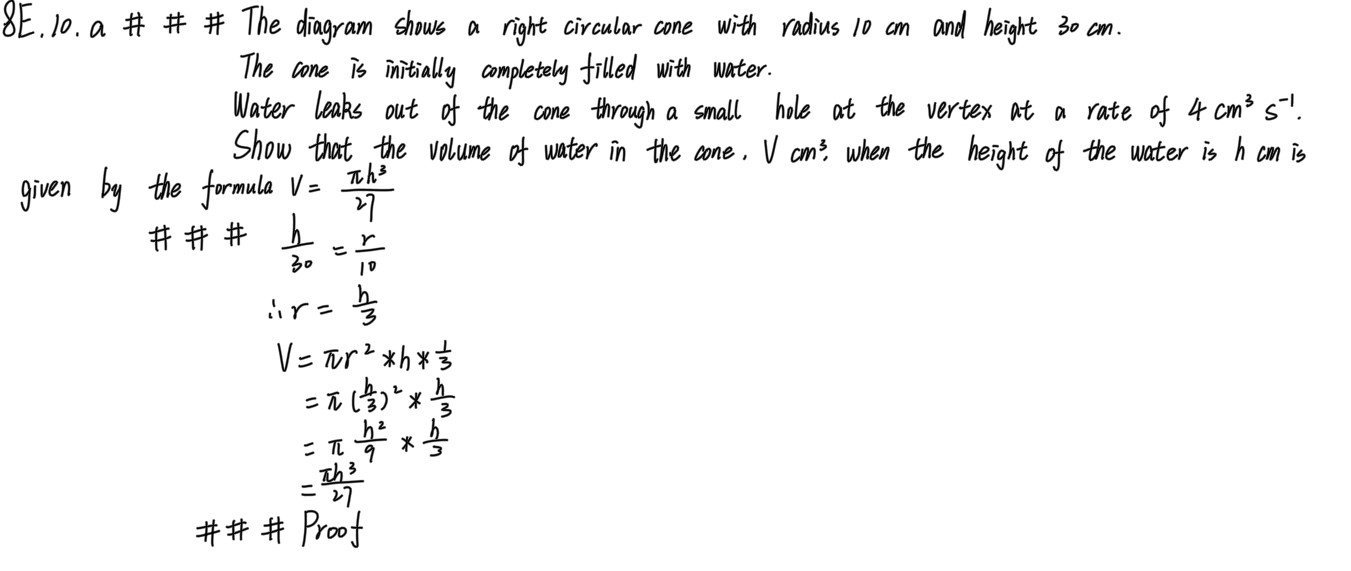 8E.10.a # # # The diagram shows a right circular cone with radius 10 cm and height 30 cm.
The cone is initially completely filled with water.
Water leaks out of the cone through a small hole at the vertex at a rate of 4 cm³ s⁻¹.
Show that the volume of water in the cone, V cm³, when the height of the water is h cm is
given by the formula V = πh³/27
# # # h/30 = r/10
∴ r = h/3
V = πr² * h * 1/3
= π (h/3)² * h/3
= π h²/9 * h/3
= πh³/27
# # # Proof